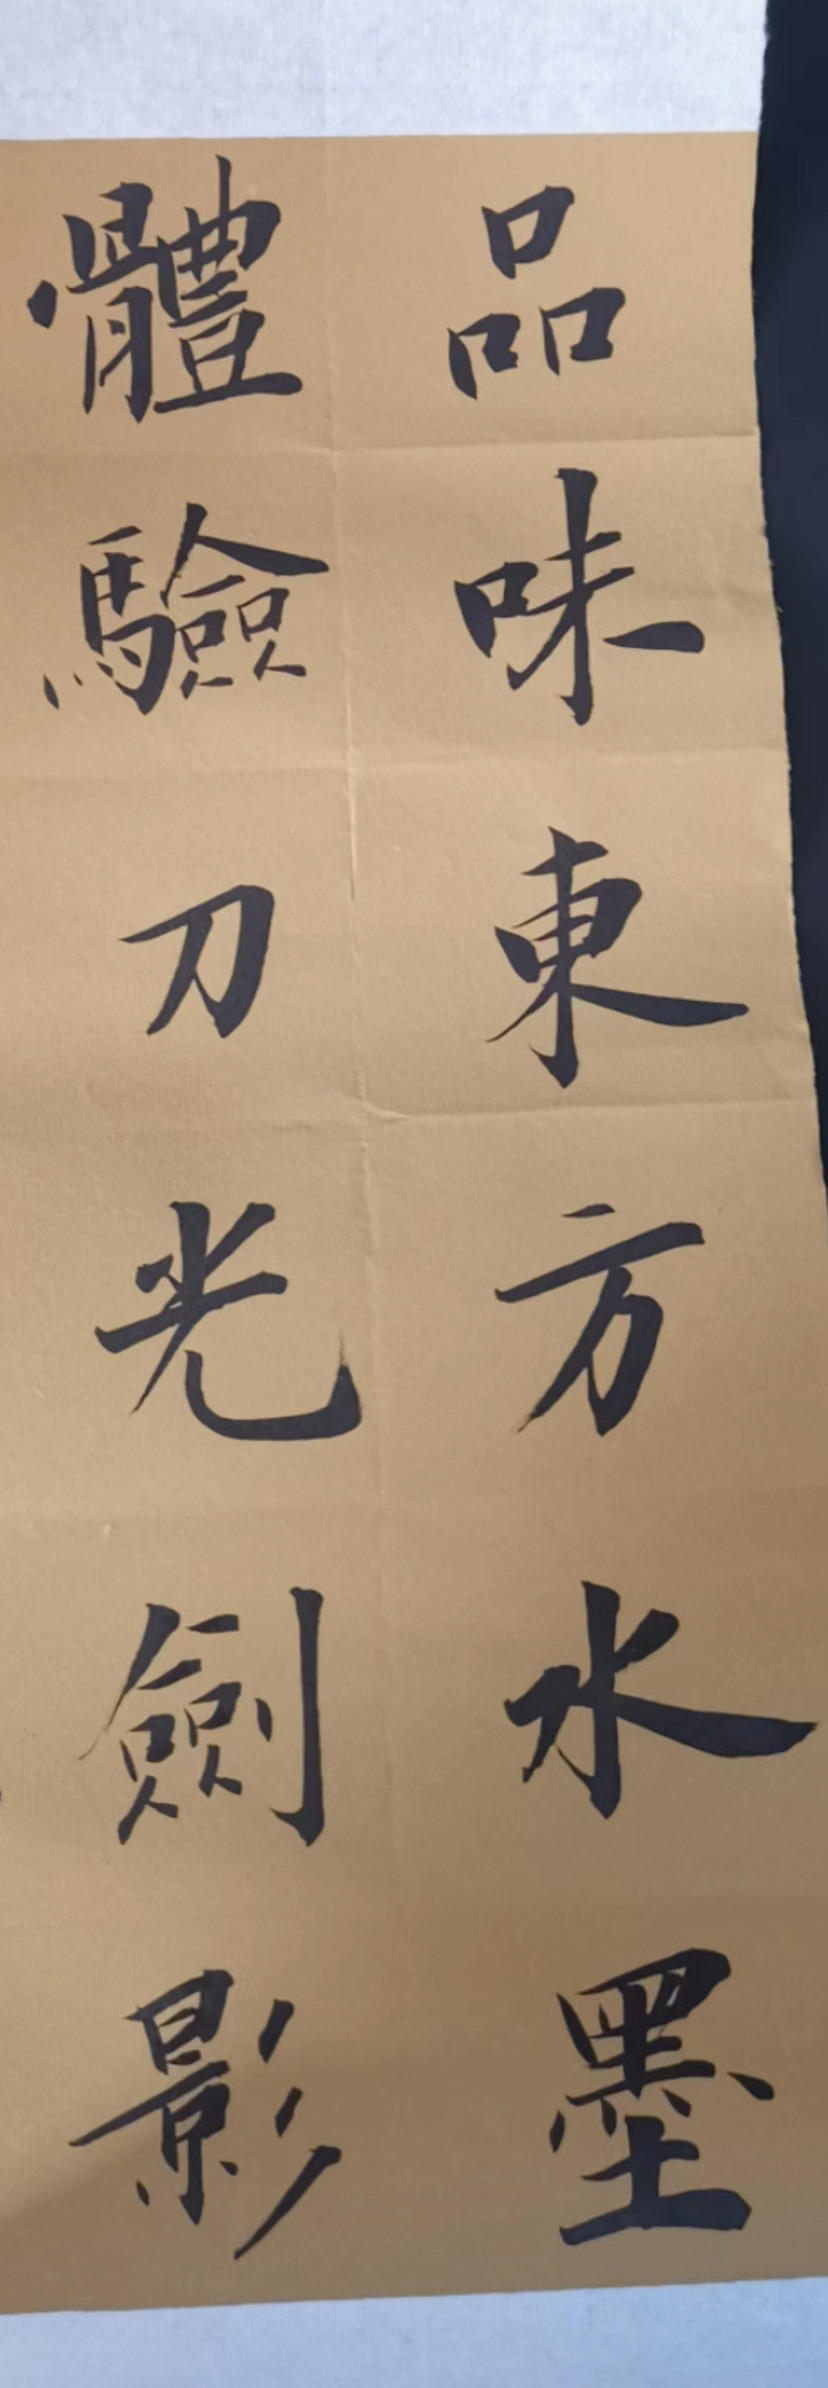 品味東方水墨
體驗刀光劍影